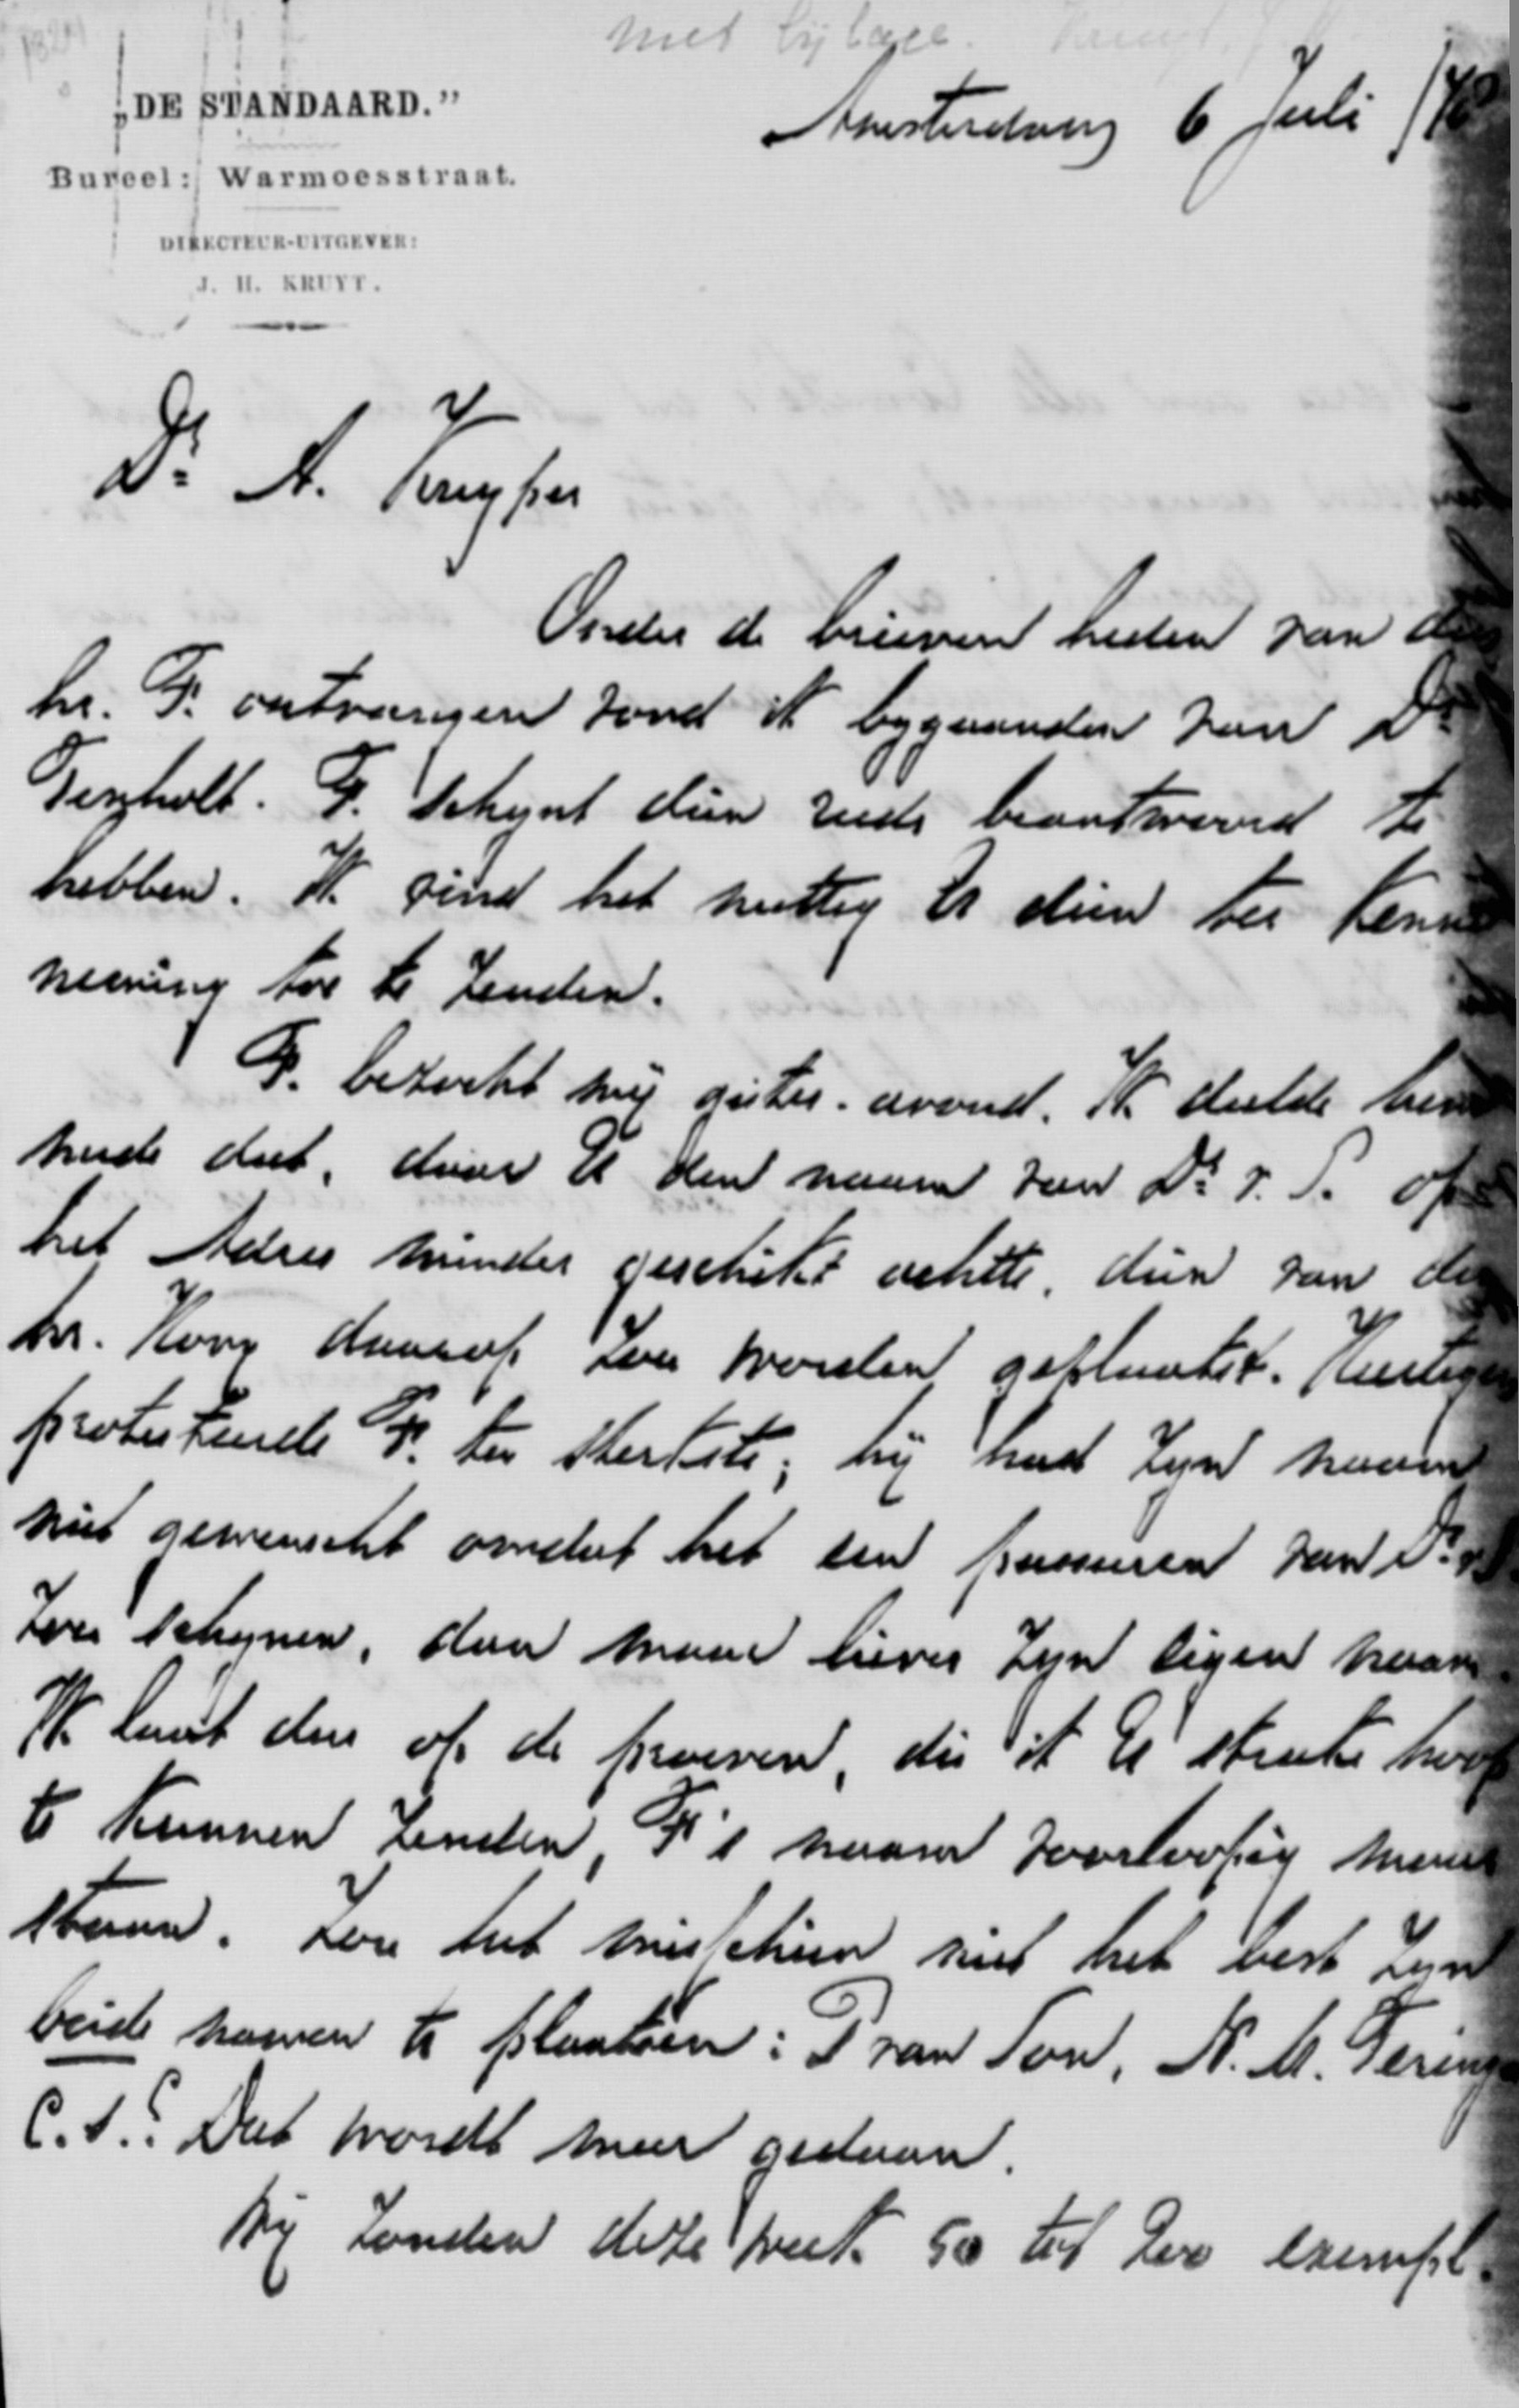 met bijlage.
„DE STANDAARD."
Bureel: Warmoesstraat.
DIRECTEUR-UITGEVER:
J. H. KRUYT.
Amsterdam 6 Juli
Dr A. Kuyper
Onder de brieven heden van den
hr. F. ontvangen vond ik bygaanden van Dr
F. schynt dien reeds beantwoord te
hebben. Ik vind het nuttig U dien ter kennis
neming toe te zenden.
F. bezocht mij gister-avond. Ik deelde hem
mede dat, daar U den naam van Dr v. S. op
het Adres minder geschikt achtte, dien van den
hr. Hovy daarop zou worden geplaatst. Hiertegen
protesteerde F. ten sterkste; hij had zyn naam
niet gewenscht omdat het een passeren van Dr v. S.
zou schynen, dan maar liever zyn eigen naam.
Ik laat dus op de proeven, die ik U straks hoop
te kunnen zenden, F's naam voorloopig maar
staan. Zou het misschien niet het best zyn
beide namen te plaatsen: P van Son, N. M. Feringa
C.S.? Dat wordt meer gedaan.
Wij zonden deze week 50 tot 200 exempl.